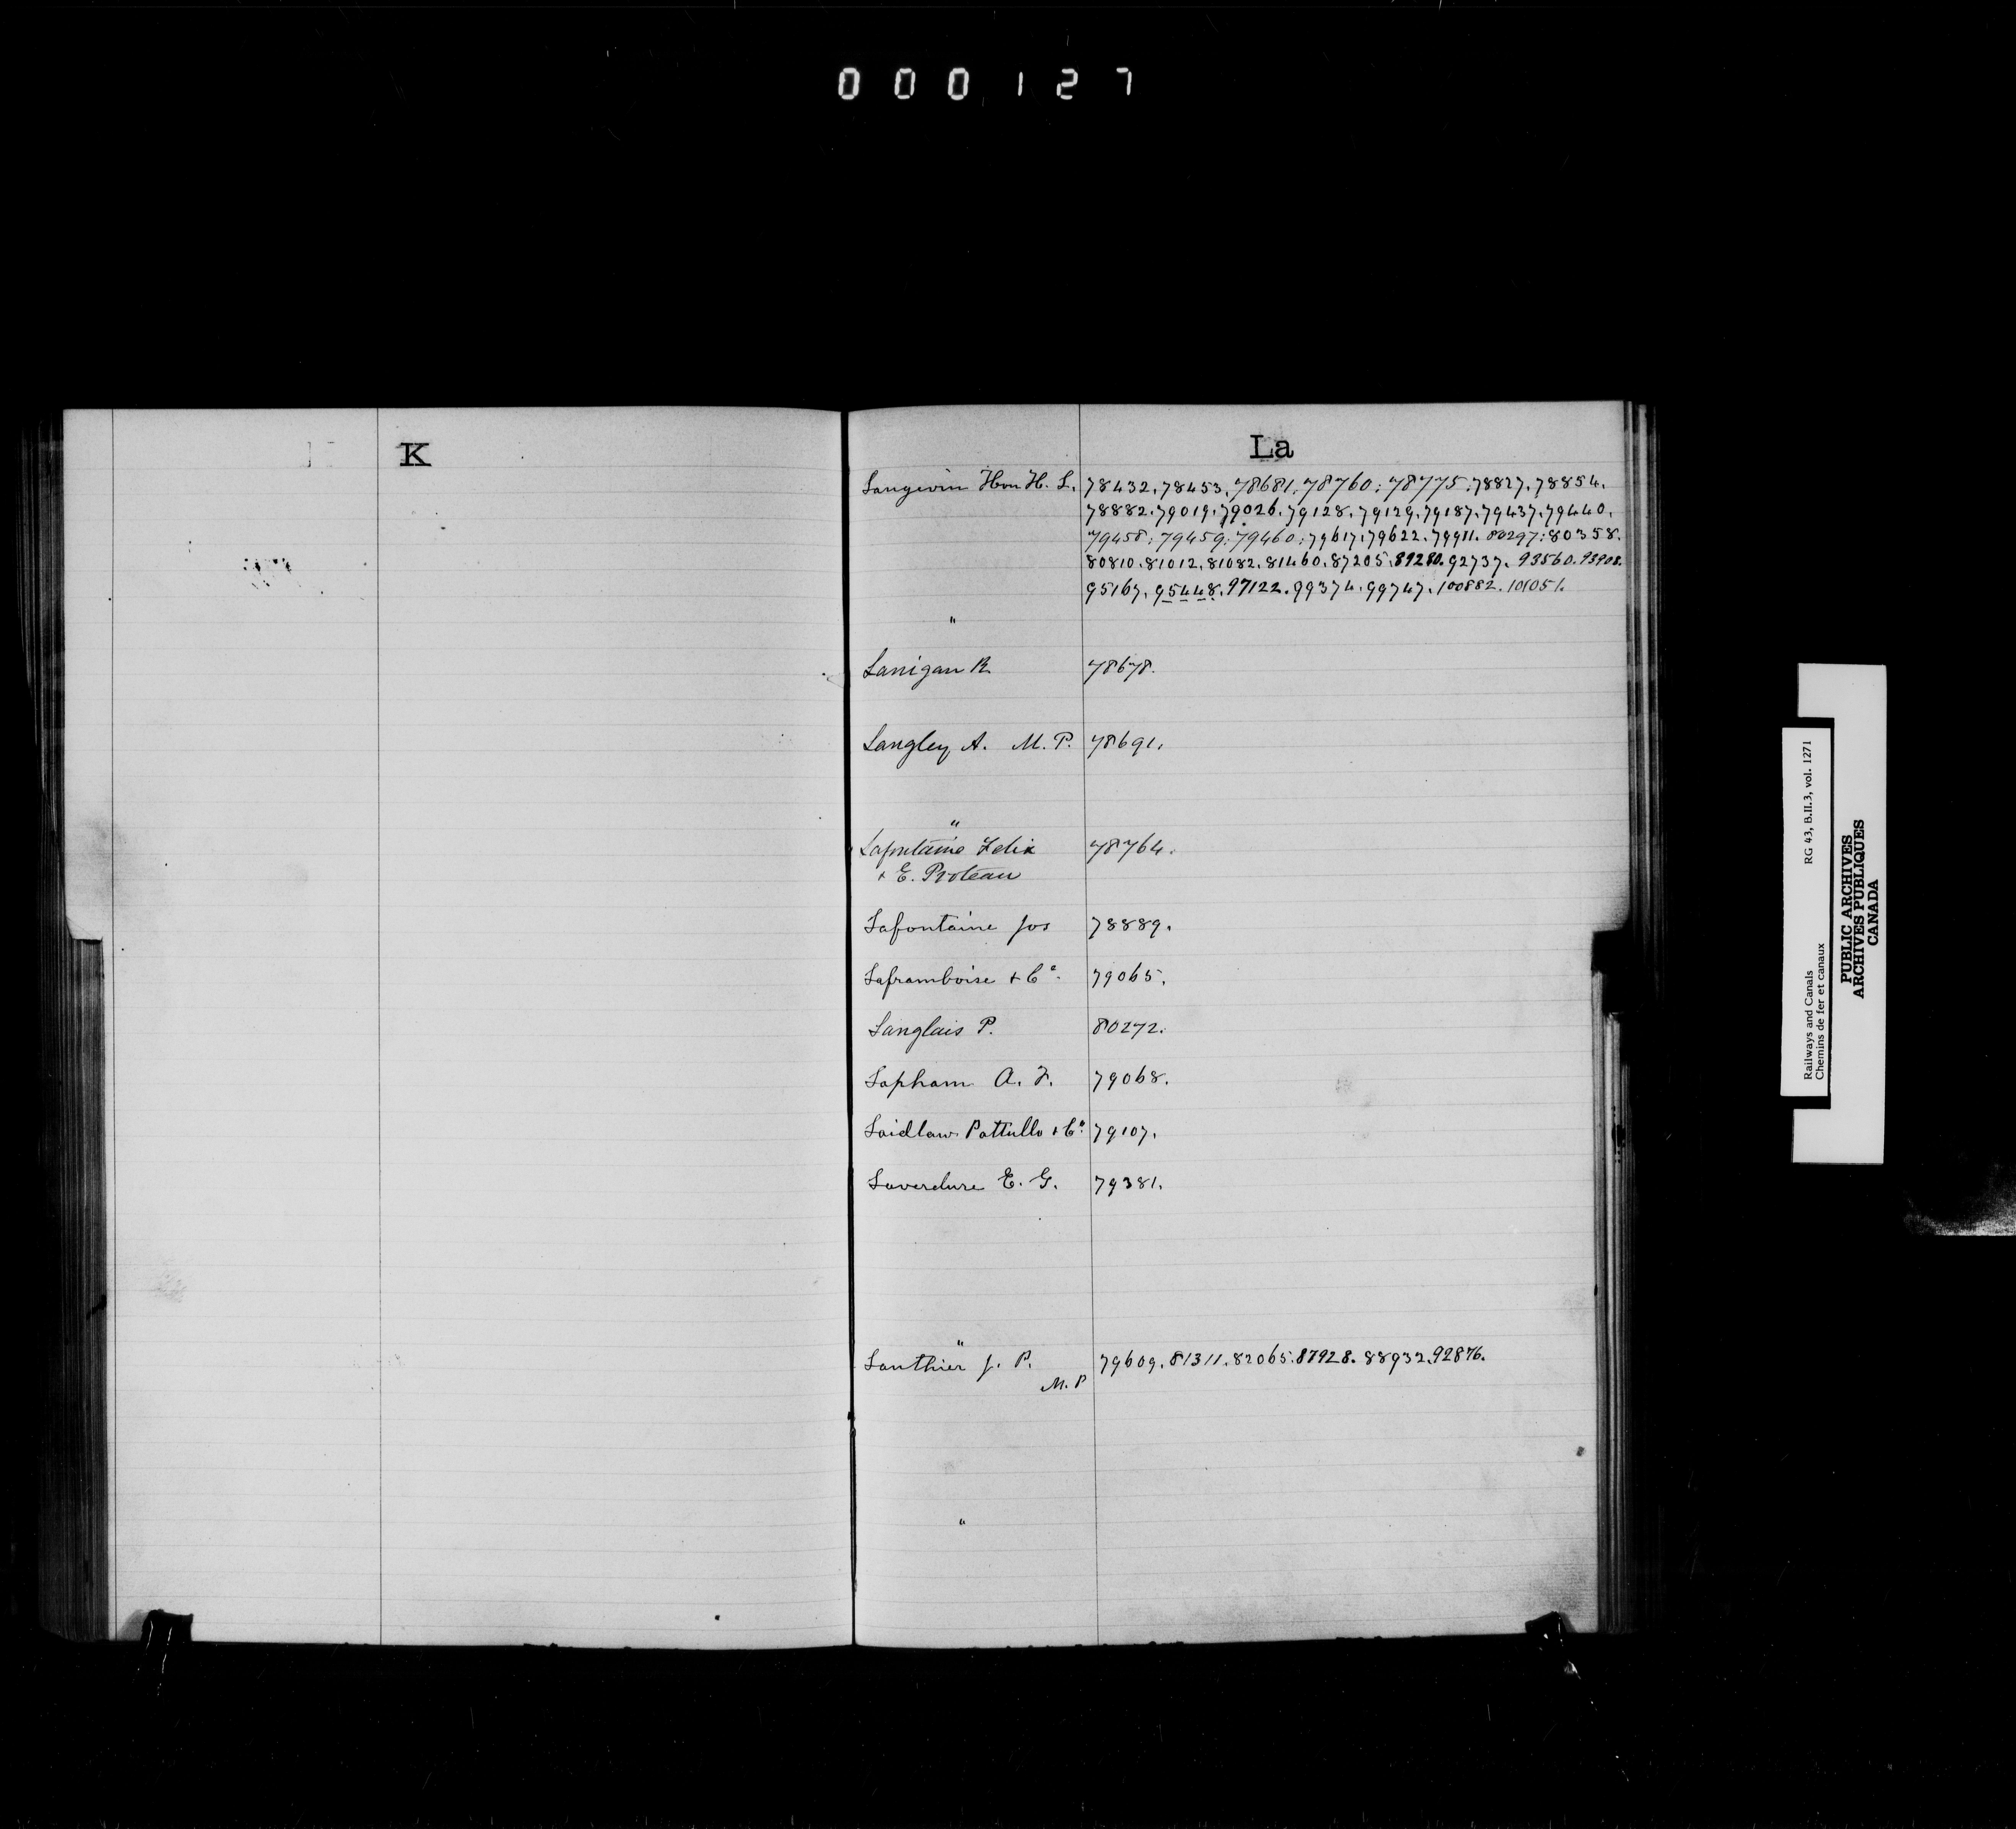 000127
K
La
Langevin Hon H. L. 78432. 78453. 78681. 78760: 78775: 78827. 78854.
78882. 79019. 79026. 79128. 79129. 79187. 79437. 79440.
79458: 79459: 79460: 79617. 79622. 79911. 80297: 80358.
80810. 81012. 81082. 81460. 87205. 89280. 92737. 93560. 93908.
95167. 95448. 97122. 99374. 99747. 100882. 101051.
"
Lanigan R. 78678.
Langley A. M. P. 78691.
"
Lafontaine Felix 78764.
+ E. Proteau
Lafontaine Jos 78889.
Laframboise + Co. 79065.
Langlais P. 80272.
Lapham A. F. 79068.
Laidlaw Pattullo + Co. 79107.
Laverdure E. G. 79381.
"
Lanthier J. P. 79609. 81311. 82065. 87928. 88932. 92876.
M. P
"
Railways and Canals RG 43, B.II.3, vol. 1271
Chemins de fer et canaux
PUBLIC ARCHIVES
ARCHIVES PUBLIQUES
CANADA